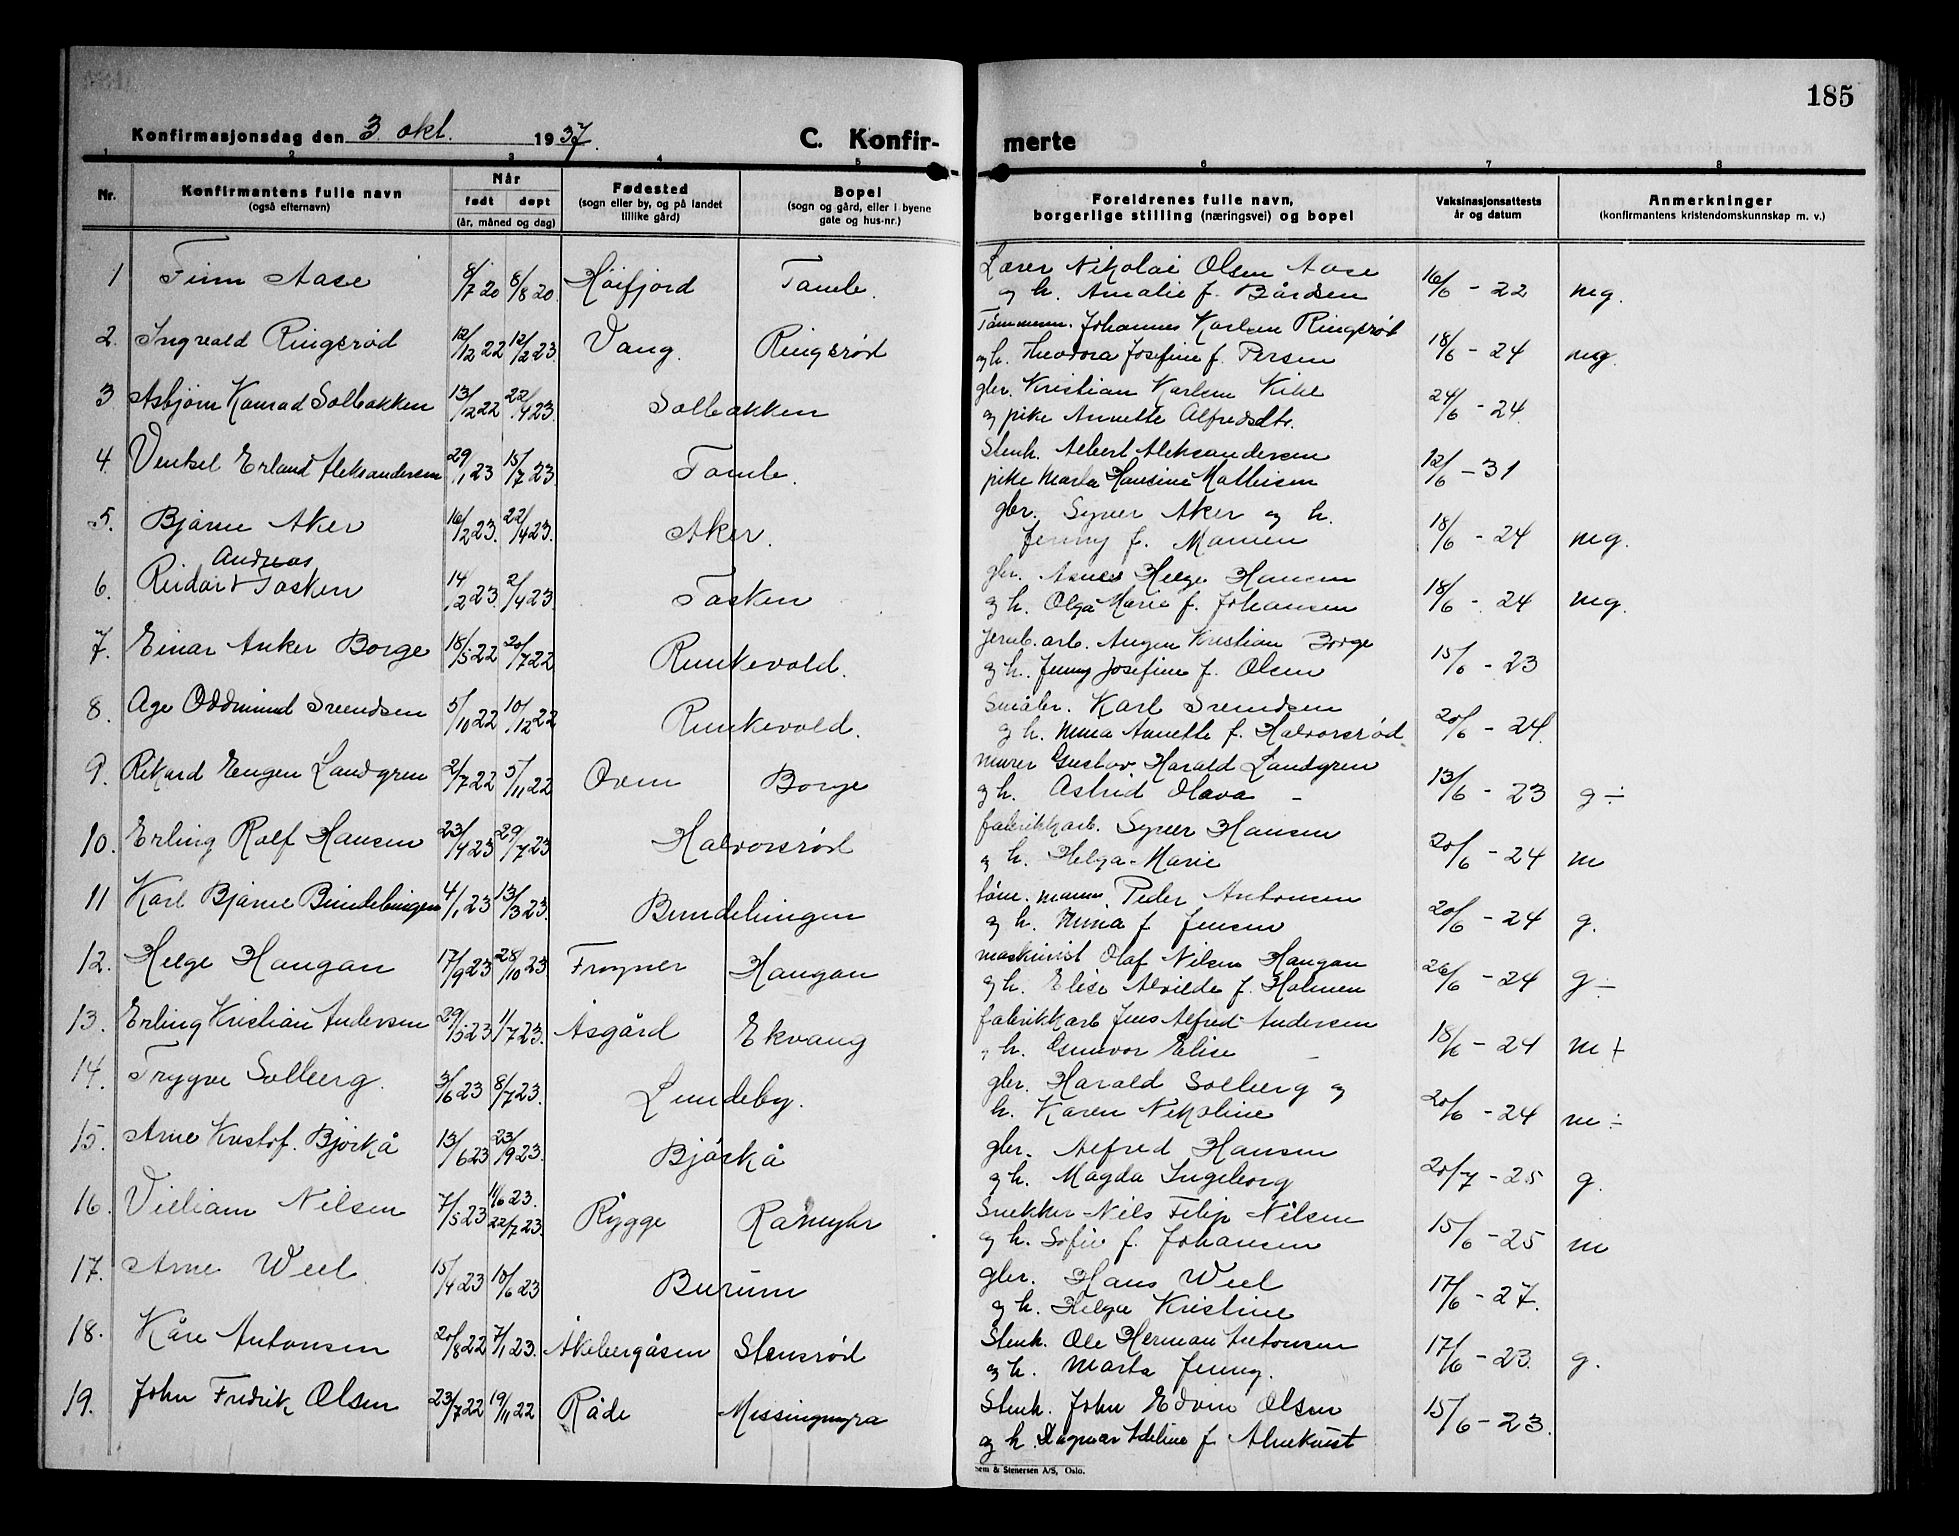 185
Konfirmasjonsdag den 3. okt. 1937.
C. Konfir-
merte
1 2 3 4 5 6 7 8
Nr.
Konfirmantens fulle navn
(også efternavn)
Når
født døpt
(år, måned og dag)
Fødested
(sogn eller by, og på landet
tillike gård)
Bopel
(sogn og gård, eller i byene
gate og hus-nr.)
Foreldrenes fulle navn,
borgerlige stilling (næringsvei) og bopel
Vaksinasjonsattests
år og datum
Anmerkninger
(konfirmantens kristendomskunnskap m. v.)
1 Finn Aase 8/7 20 8/8 20. Höifjord Tomb. Lærer Nikolai Olsen Aase
og h. Amalie f. Bårdsen 16/6 - 22 mg.
2. Ingvald Ringsrød 12/12 22 12/2 23. Vang. Ringsrød Tömmerm. Johannes Karlsen Ringsrød
og h. Theodora Josefine f. Persen 18/6 - 24 mg.
3. Asbjørn Konrad Solbakken 13/12 22 22/4 23. Solbakken gbr. Kristian Karlsen
og pike Annette Alfredsdtr. 24/6 - 24.
4. Erland Aleksandersen 29/1 23 15/7 23. Tomb. Stenh. Albert Aleksandersen
pike Marta Hansine Mathisen 12/6 - 31
5. Bjarne Aker 16/2 23. 22/4 23. Aker. gbr. Syver Aker og h.
Jenny f. Monsen 18/6 - 24 mg.
Andreas
6. Reidar Tosken 14/2 23. 2/4 23. Tosken gbr. Helge Hansen
og h. Olga Marie f. Johansen 18/6 - 24 mg.
7. Einar Anker Borge 18/5 22 20/7 22 Runkevold. Jernb. arb. Kristian Borge
og h. Jenny Josefine f. Olsen 15/6 - 23
8. Age Oddmund Svendsen 5/10 22 10/12 22 Runkevold. Småbr. Karl Svendsen
og h. Annette f. Halvorsrød. 20/6 - 24.
9. Rikard Eugen Landgren 2/7 22 5/11 22 Oven Borge murer Gustav Harald Landgren
og h. Astrid Olava - 13/6 - 23 g ÷
10. Erling Rolf Hansen 23/4 23 29/7 23 Halvorsrød fabrikkarb. Syver Hansen
og h. Helga Marie 20/6 - 24 m
11 Karl Bjarne Bundebingen 4/1 23 13/3 23. Bundebingen töm. mann. Peder Antonsen
og h. f Jensen 20/6 - 24 g.
12. Helge Haugan 17/9 23 28/10 23 Frogner Haugan maskinist Olaf Nilsen Haugan
og h. Elise Alvilde f. Holmen 26/6 - 24 g -
13. Erling Kristian Andersen 29/5 23 1/7 23. Åsgård Ekvang fabrikkarb Jens Alfred Andersen
og h. Gunvor Elise - 18/6 - 24 m +
14. Trygve Solberg. 3/6 23 8/7 23. Lundeby. gbr. Harald Solberg og
h. Karen Nikoline 20/6 - 24 m ÷
15. Arne Kristof. Björkå 13/6 23 23/9 23. Björkå gbr. Alfred Hansen
og h. Magda Ingeborg 20/7 - 25 g.
16. Villiam Nilsen 7/5 23 11/6 23.
22/7 23. Rygge Snekker Nils Filip Nilsen
og h. Sofie f. Johansen 15/6 - 25 m
17. Arne Weel. 15/4 23 10/6 23 Burum gbr. Hans Weel
og h. Helga Kristine 17/6 - 27.
18. Kåre Antonsen 20/8 22 7/1 23. Åkebergåsen Stensrød Stenh. Ole Herman Antonsen
og h. Marta Jenny. 17/6 - 23. g.
19. John Fredrik Olsen 23/7 22 19/11 22 Råde Messingmyra Stenh. John Edvin Olsen
og h. Dagmar Adeline f. Almkvist 15/6 - 23.
& Stenersen A/S, Oslo.